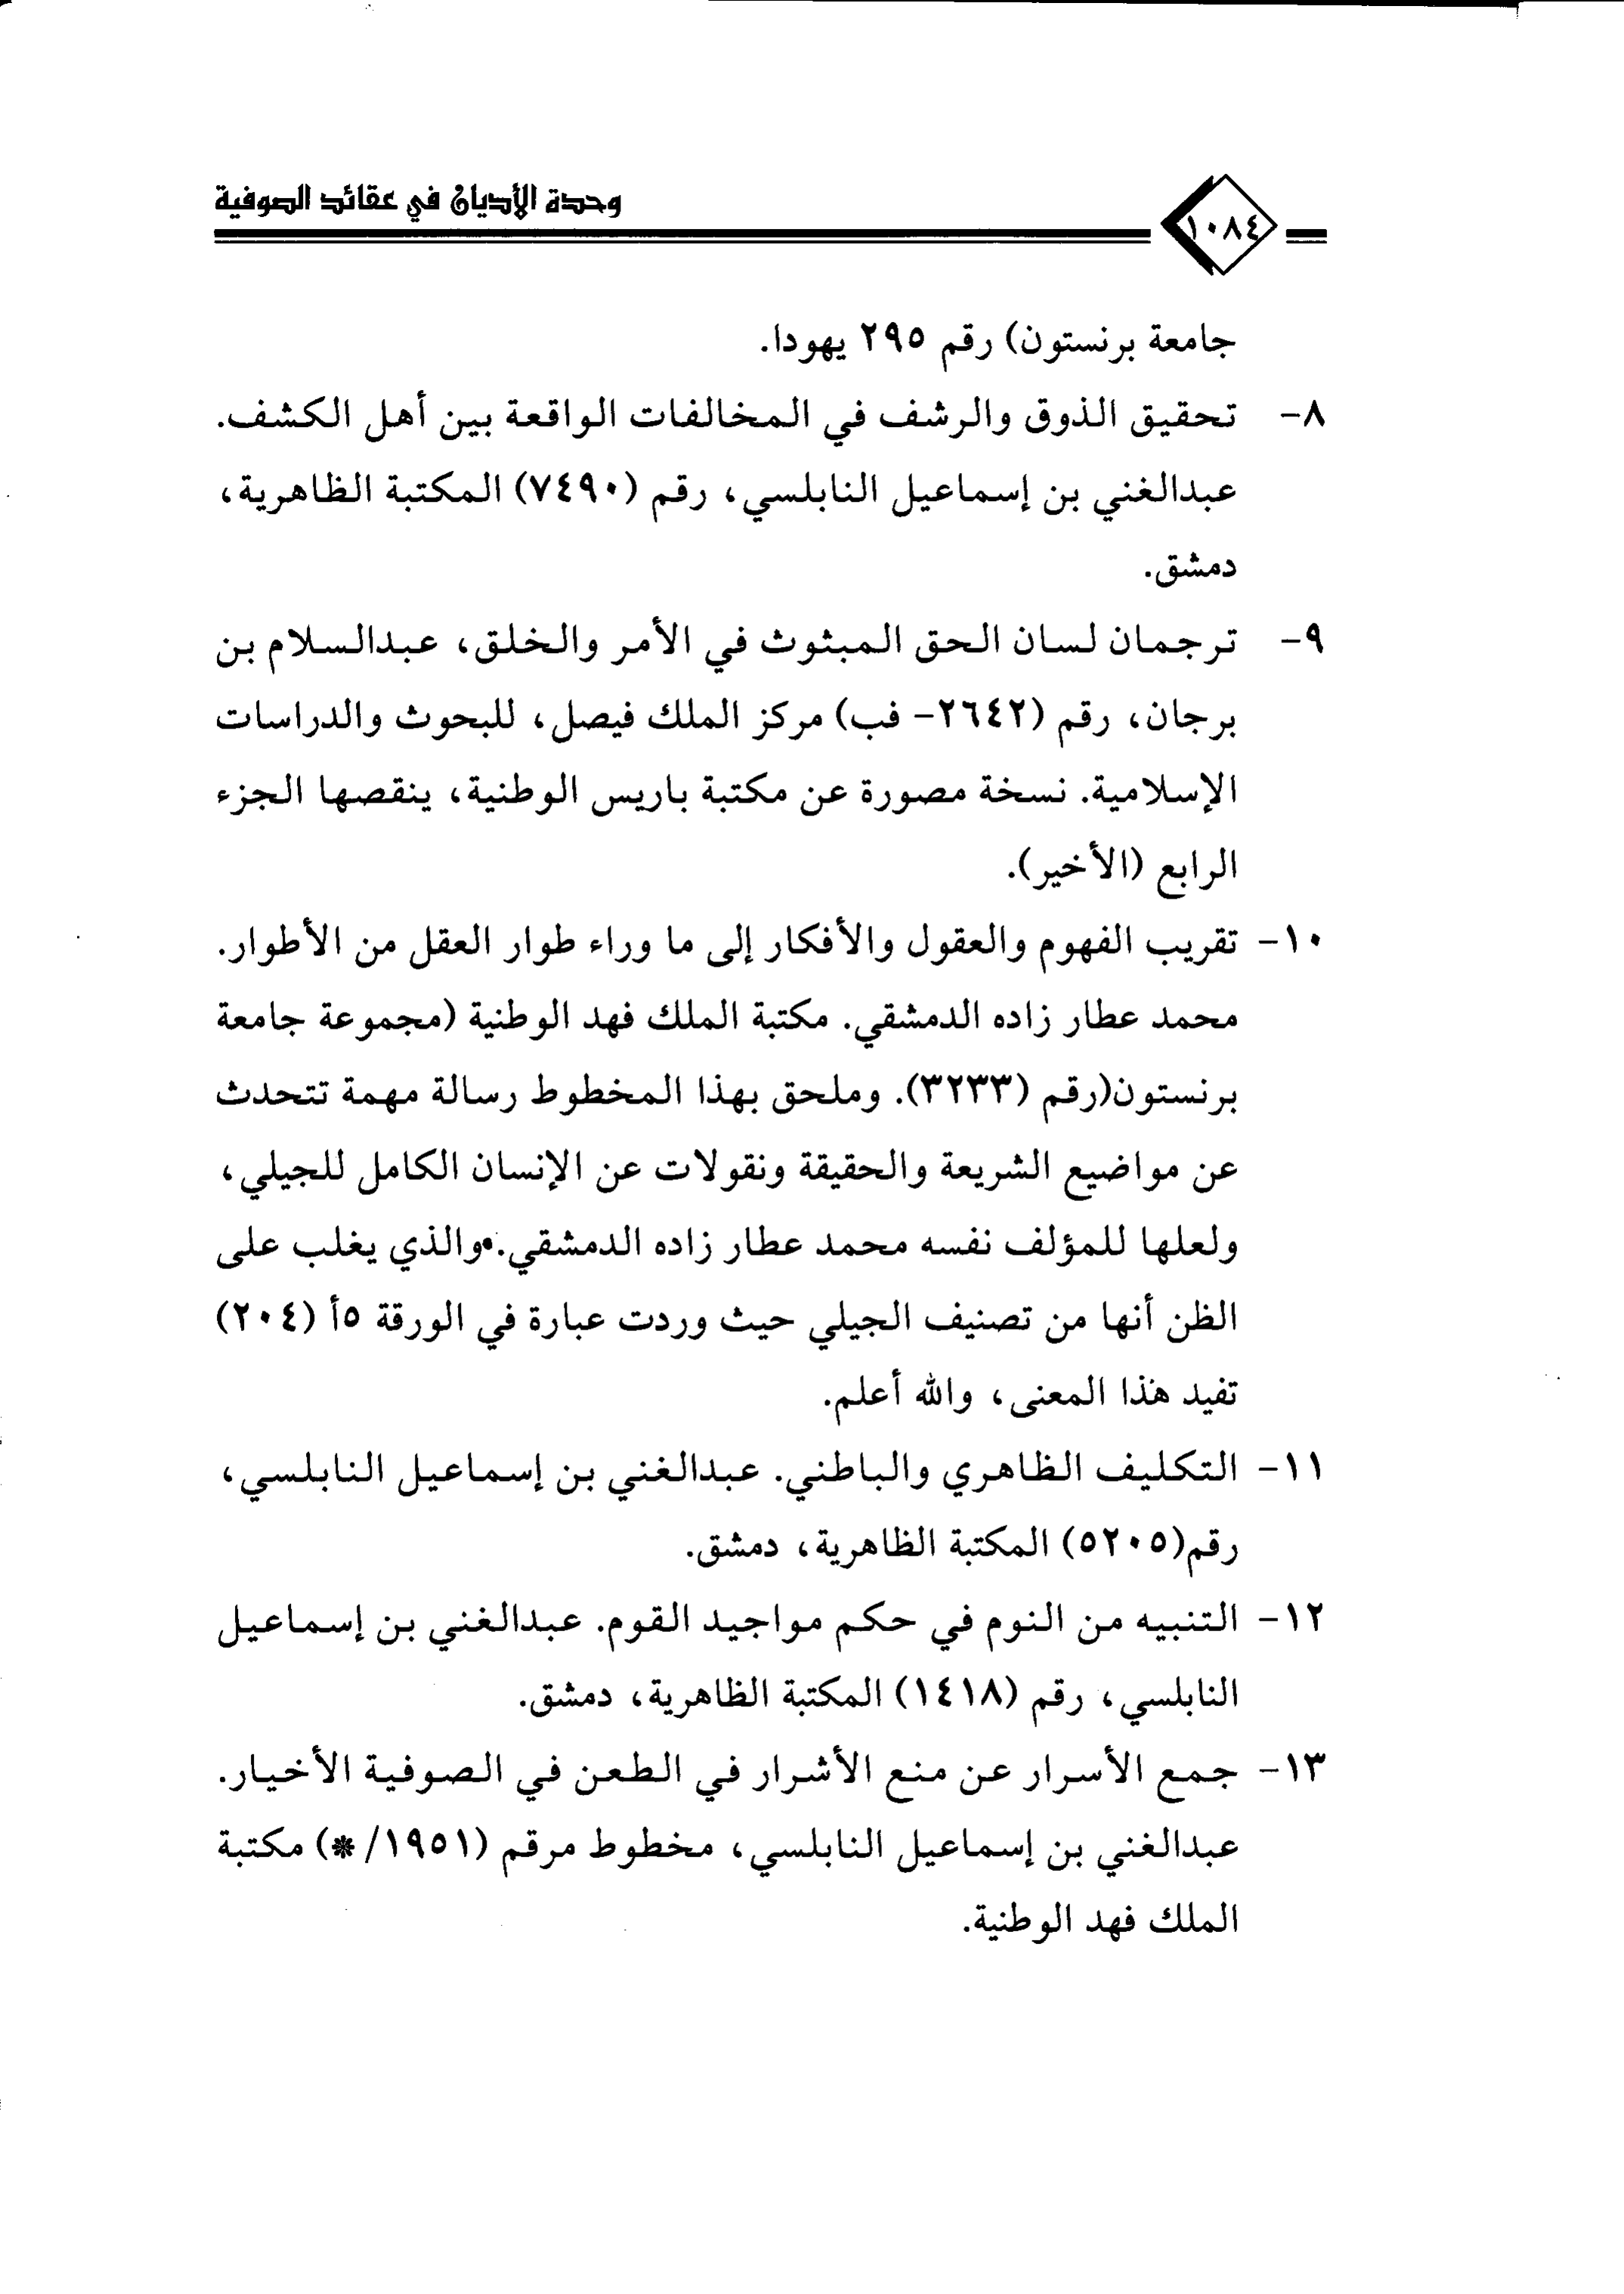 وحدة الأديان في عقائد الصوفية
١٠٨٤
جامعة برنستون) رقم ٢٩٥ يهودا.
٨- تحقيق الذوق والرشف في المخالفات الواقعة بين أهل الكشف.
عبدالغني بن إسماعيل النابلسي، رقم (٧٤٩٠) المكتبة الظاهرية،
دمشق.
٩- ترجمان لسان الحق المبثوث في الأمر والخلق، عبدالسلام بن
برجان، رقم (٢٦٤٢- فب) مركز الملك فيصل، للبحوث والدراسات
الإسلامية. نسخة مصورة عن مكتبة باريس الوطنية، ينقصها الجزء
الرابع (الأخير).
١٠- تقريب الفهوم والعقول والأفكار إلى ما وراء طوار العقل من الأطوار.
محمد عطار زاده الدمشقي. مكتبة الملك فهد الوطنية (مجموعة جامعة
برنستون(رقم (٣٢٣٣). وملحق بهذا المخطوط رسالة مهمة تتحدث
عن مواضيع الشريعة والحقيقة ونقولات عن الإنسان الكامل للجيلي،
ولعلها للمؤلف نفسه محمد عطار زاده الدمشقي. والذي يغلب على
الظن أنها من تصنيف الجيلي حيث وردت عبارة في الورقة ٥أ (٢٠٤)
تفيد هذا المعنى، والله أعلم.
١١- التكليف الظاهري والباطني. عبدالغني بن إسماعيل النابلسي،
رقم(٥٢٠٥) المكتبة الظاهرية، دمشق.
١٢- التنبيه من النوم في حكم مواجيد القوم. عبدالغني بن إسماعيل
النابلسي، رقم (١٤١٨) المكتبة الظاهرية، دمشق.
١٣- جمع الأسرار عن منع الأشرار في الطعن في الصوفية الأخيار.
عبدالغني بن إسماعيل النابلسي، مخطوط مرقم (١٩٥١/*) مكتبة
الملك فهد الوطنية.